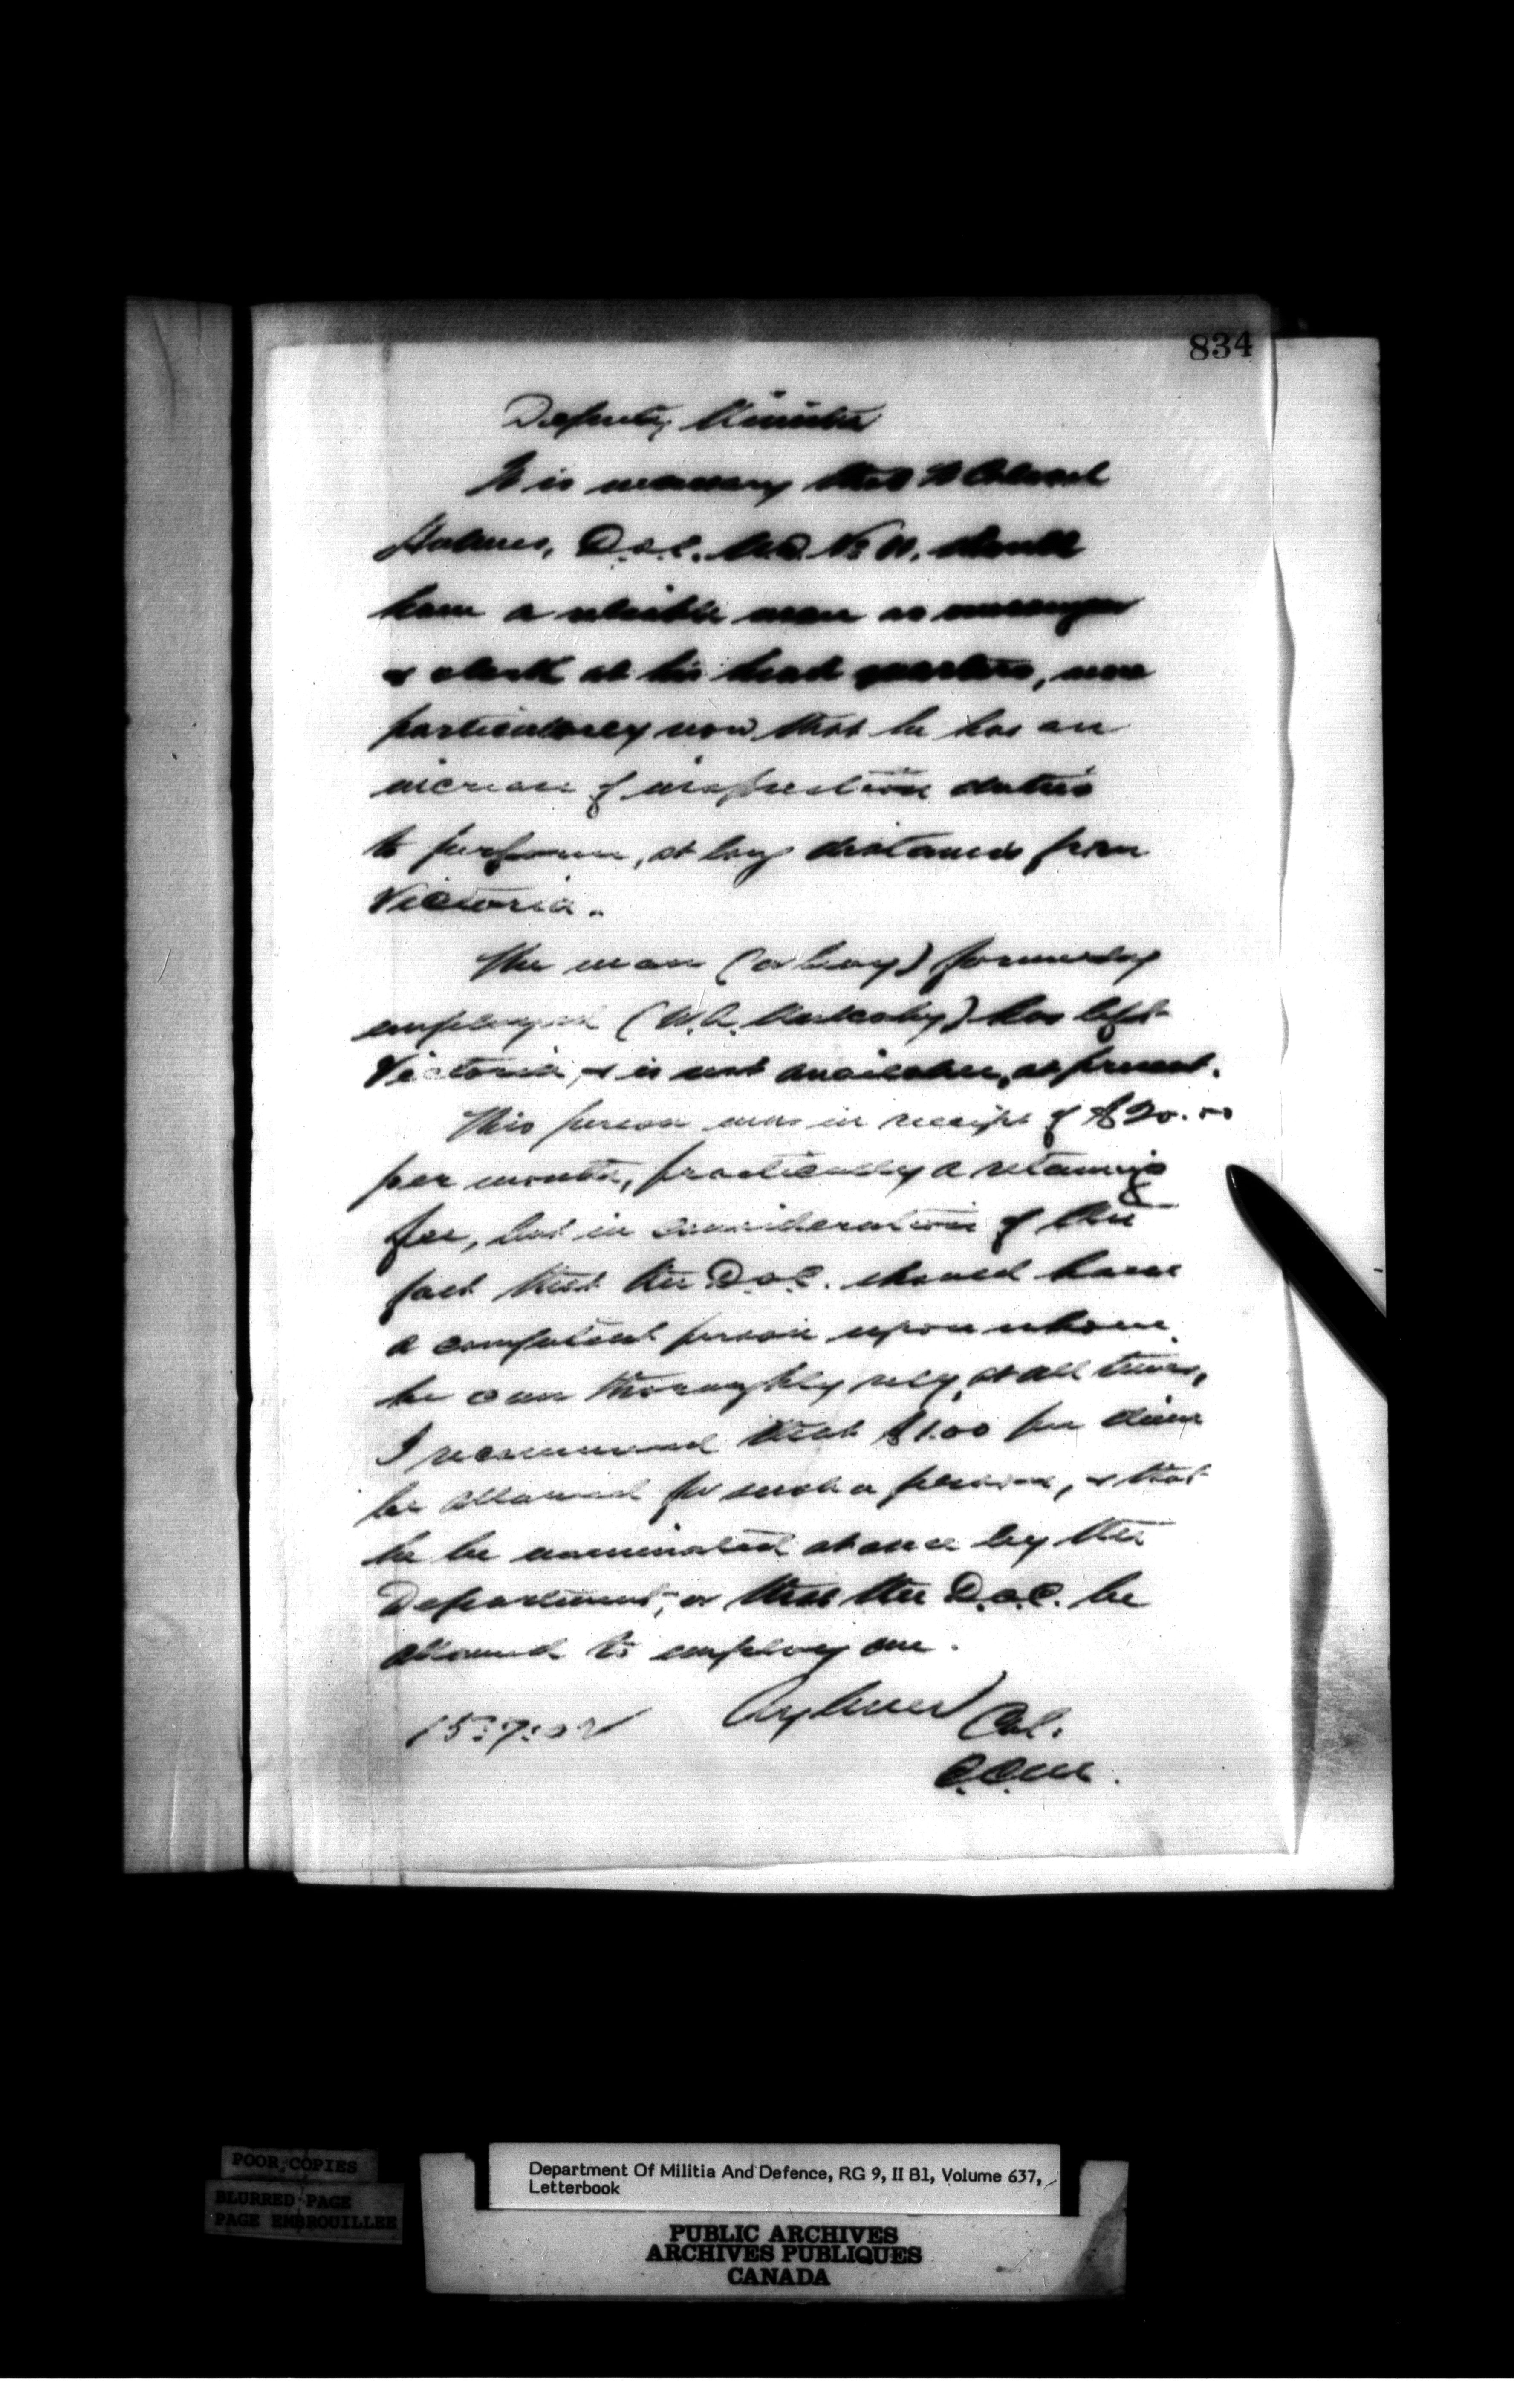 834
Deputy Minister
It is necessary that Lt Colonel
Holmes, D.O.C. M.D. No 11, should
have a reliable man as messenger
& clerk at his head quarters, more
particularly now that he has an
increase of inspection duties
to perform, at long distances from
Victoria.
The man (or boy) formerly
employed (W.A.) has left
Victoria, & is not available, at present.
This person was in receipt of $20.00
per month, practically a retaining
fee, but in consideration of the
fact that the D.O.C. should have
a competent person upon whom
he can thoroughly rely, at all times,
I recommend that $1.00 per diem
be allowed for such a person, & that
he be nominated at once by the
Department, or that the D.O.C. be
allowed to employ one.
15:7:02 Aylmer Col.
POOR COPIES
BLURRED PAGE
PAGE EMBROUILLEE
Department Of Militia And Defence, RG 9, II B1, Volume 637,
Letterbook
PUBLIC ARCHIVES
ARCHIVES PUBLIQUES
CANADA